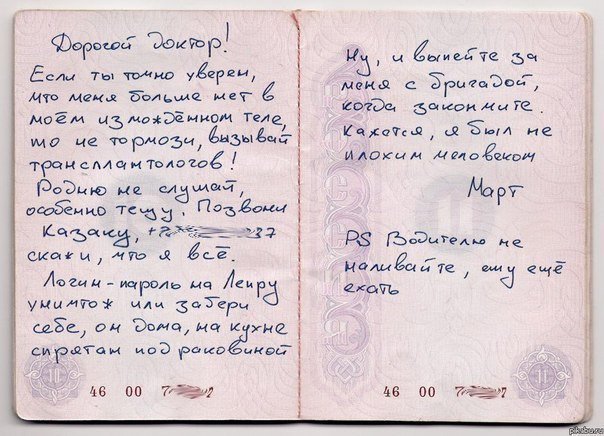 Дорогой доктор!
Если ты точно уверен,
что меня больше нет в
моём измождённом теле,
то не тормози, вызывай
трансплантологов!
Родню не слушай,
особенно тещу. Позвони
Казаку, +7 37
скажи, что я всё.
Логин-пароль на Лепру
уничтож или забери
себе, он дома, на кухне
спрятан под раковиной
46 00 7
Ну, и выпейте за
меня с бригадой,
когда закончите.
Кажется, я был не
плохим человеком
Март
PS Водителю не
наливайте, ему ещё
ехать
46 00 7
pikabu.ru